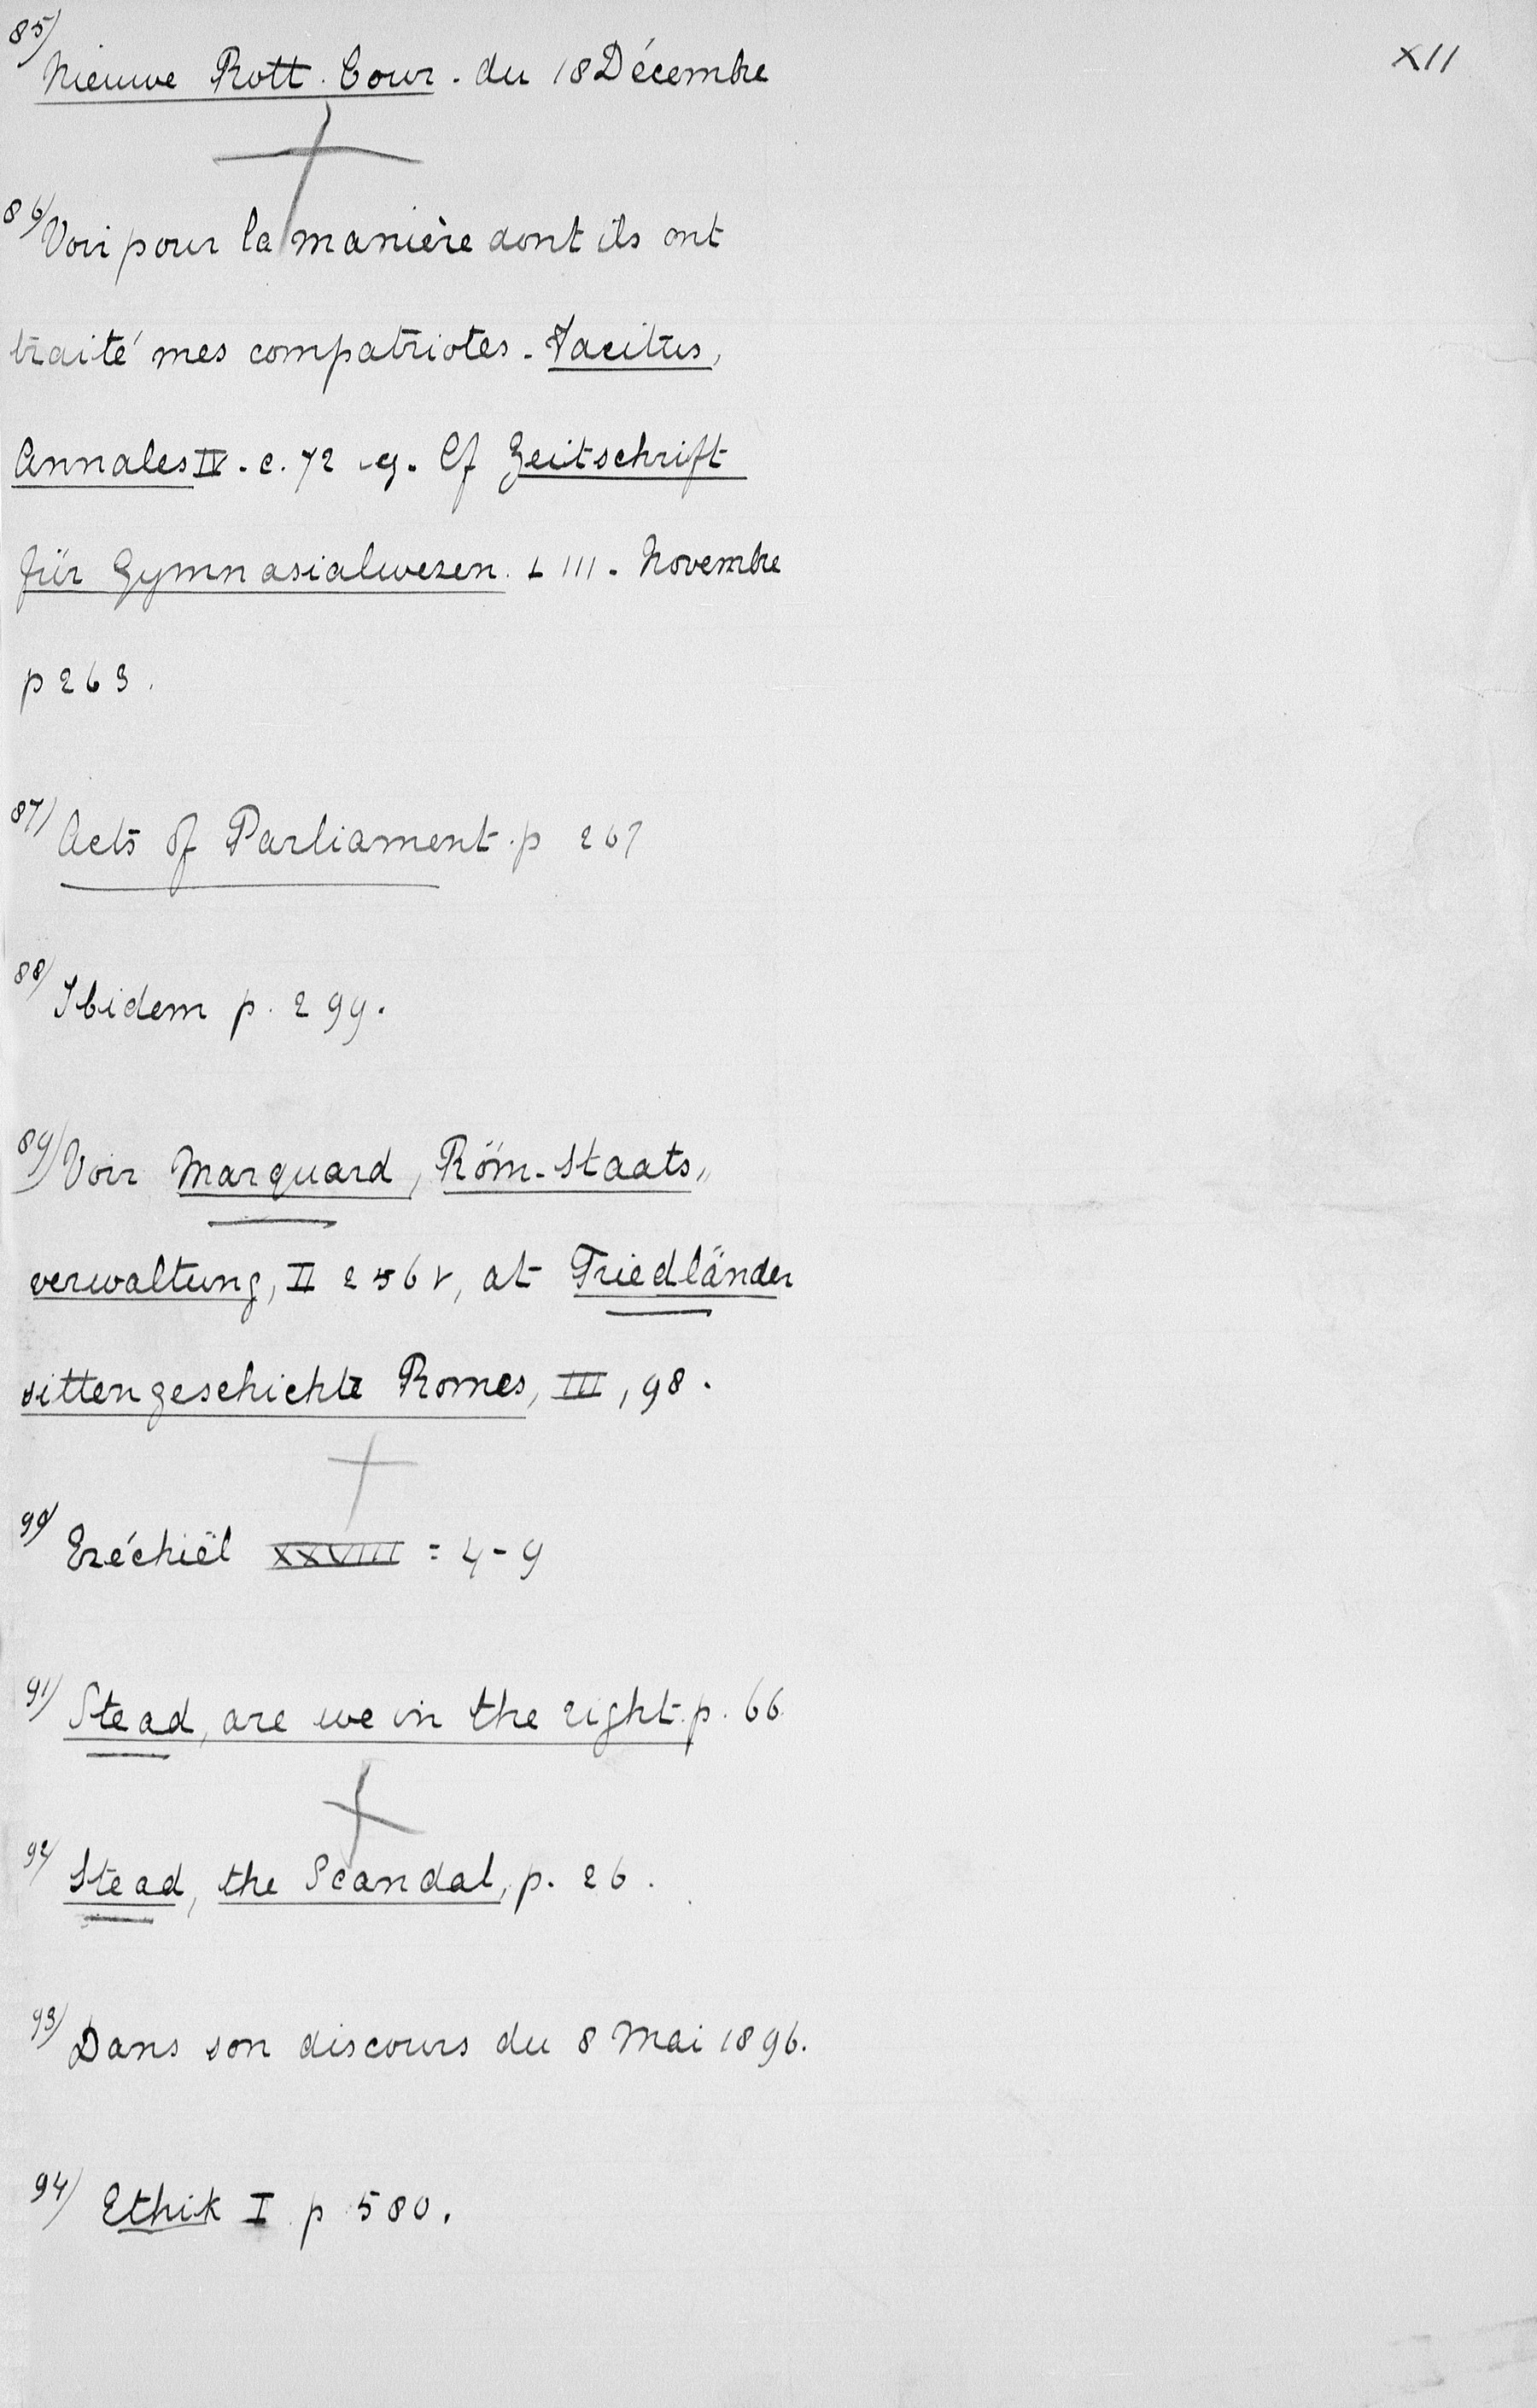 XII
85) Nieuwe Rott. Cour. du 18 Décembre
86) Voir pour la manière dont ils ont
traité mes compatriotes. Tacitus,
Annales IV. c. 72 sq. Cf Zeitschrift
für Gymnasialwesen. LIII. Novembre
p 263.
87) Acts of Parliament. p 267
88) Ibidem p. 299.
89) Voir Marquard, Röm. Staats„
verwaltung, II 256 v, at Friedländer
sittengeschichte Romes, III, 98.
90) Ezéchiël XXVIII = 4-9
91) Stead, are we in the right. p. 66
92) Stead, the Scandal, p. 26.
93) Dans son discours du 8 Mai 1896.
94) Ethik I p 580.